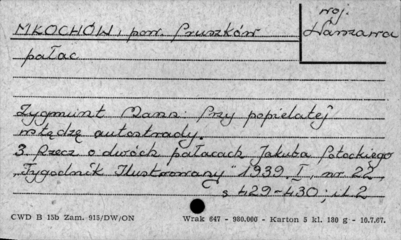 woj.
MŁOCHÓW, pow. Pruszków Warszawa
pałac
Zygmunt Mann: Przy popielatej
wstędze autostrady.
3. Rzecz o dwóch pałacach Jakuba Potockiego
„Tygodnik Ilustrowany" 1939. I, nr. 22,
s 429-430; il 2
CWD B 15b Zam. 915/DW/ON Wrak 647 - 980.000 - Karton 5 kl. 180 g - 10.7.67.